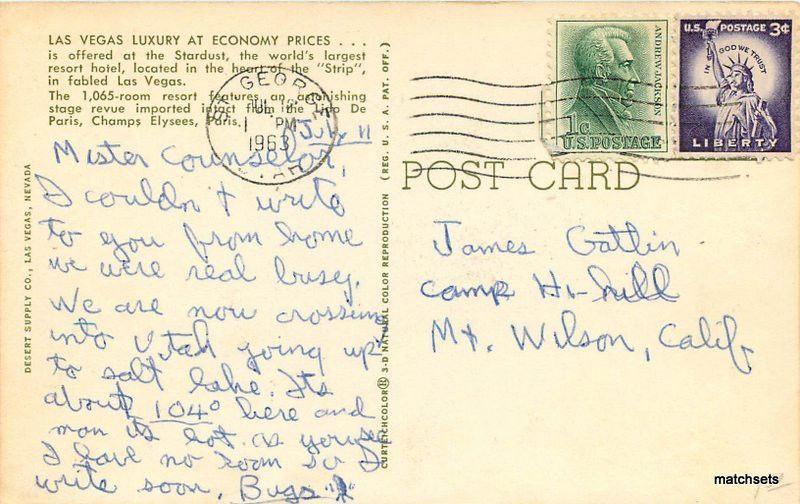 LAS VEGAS LUXURY AT ECONOMY PRICES . . .
is offered at the Stardust, the world's largest
resort hotel, located in the heart of the "Strip",
in fabled Las Vegas.
The 1,065-room resort features an astonishing
stage revue imported intact from the Lido De
Paris, Champs Elysees, Paris.
ST. GEORGE
JUL
PM
1963
UTAH
July 11
Mister Counselor,
I couldn't write
to you from home
we were real busy.
We are now crossing
into Utah going up
to salt lake. Its
about 104° here and
man its hot. as
I have no room so I
write soon, Bugs
DESERT SUPPLY CO., LAS VEGAS, NEVADA
CURTEICHCOLOR® 3-D NATURAL COLOR REPRODUCTION (REG. U. S. A. PAT. OFF.)
ANDREW JACKSON
1c
U.S. POSTAGE
U.S. POSTAGE 3¢
IN GOD WE TRUST
LIBERTY
POST CARD
James Gatlin
camp Hi-hill
Mt. Wilson, Calif.
matchsets